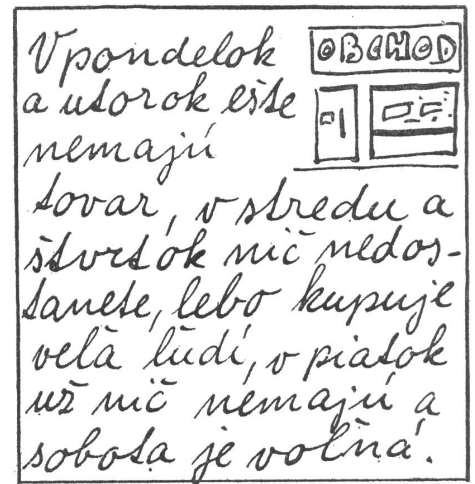 V pondelok
OBCHOD
a utorok ešte
nemajú
tovar, v stredu a
štvrtok nič nedos-
tanete, lebo kupuje
veľa ľudí, v piatok
už nič nemajú a
sobota je voľná.